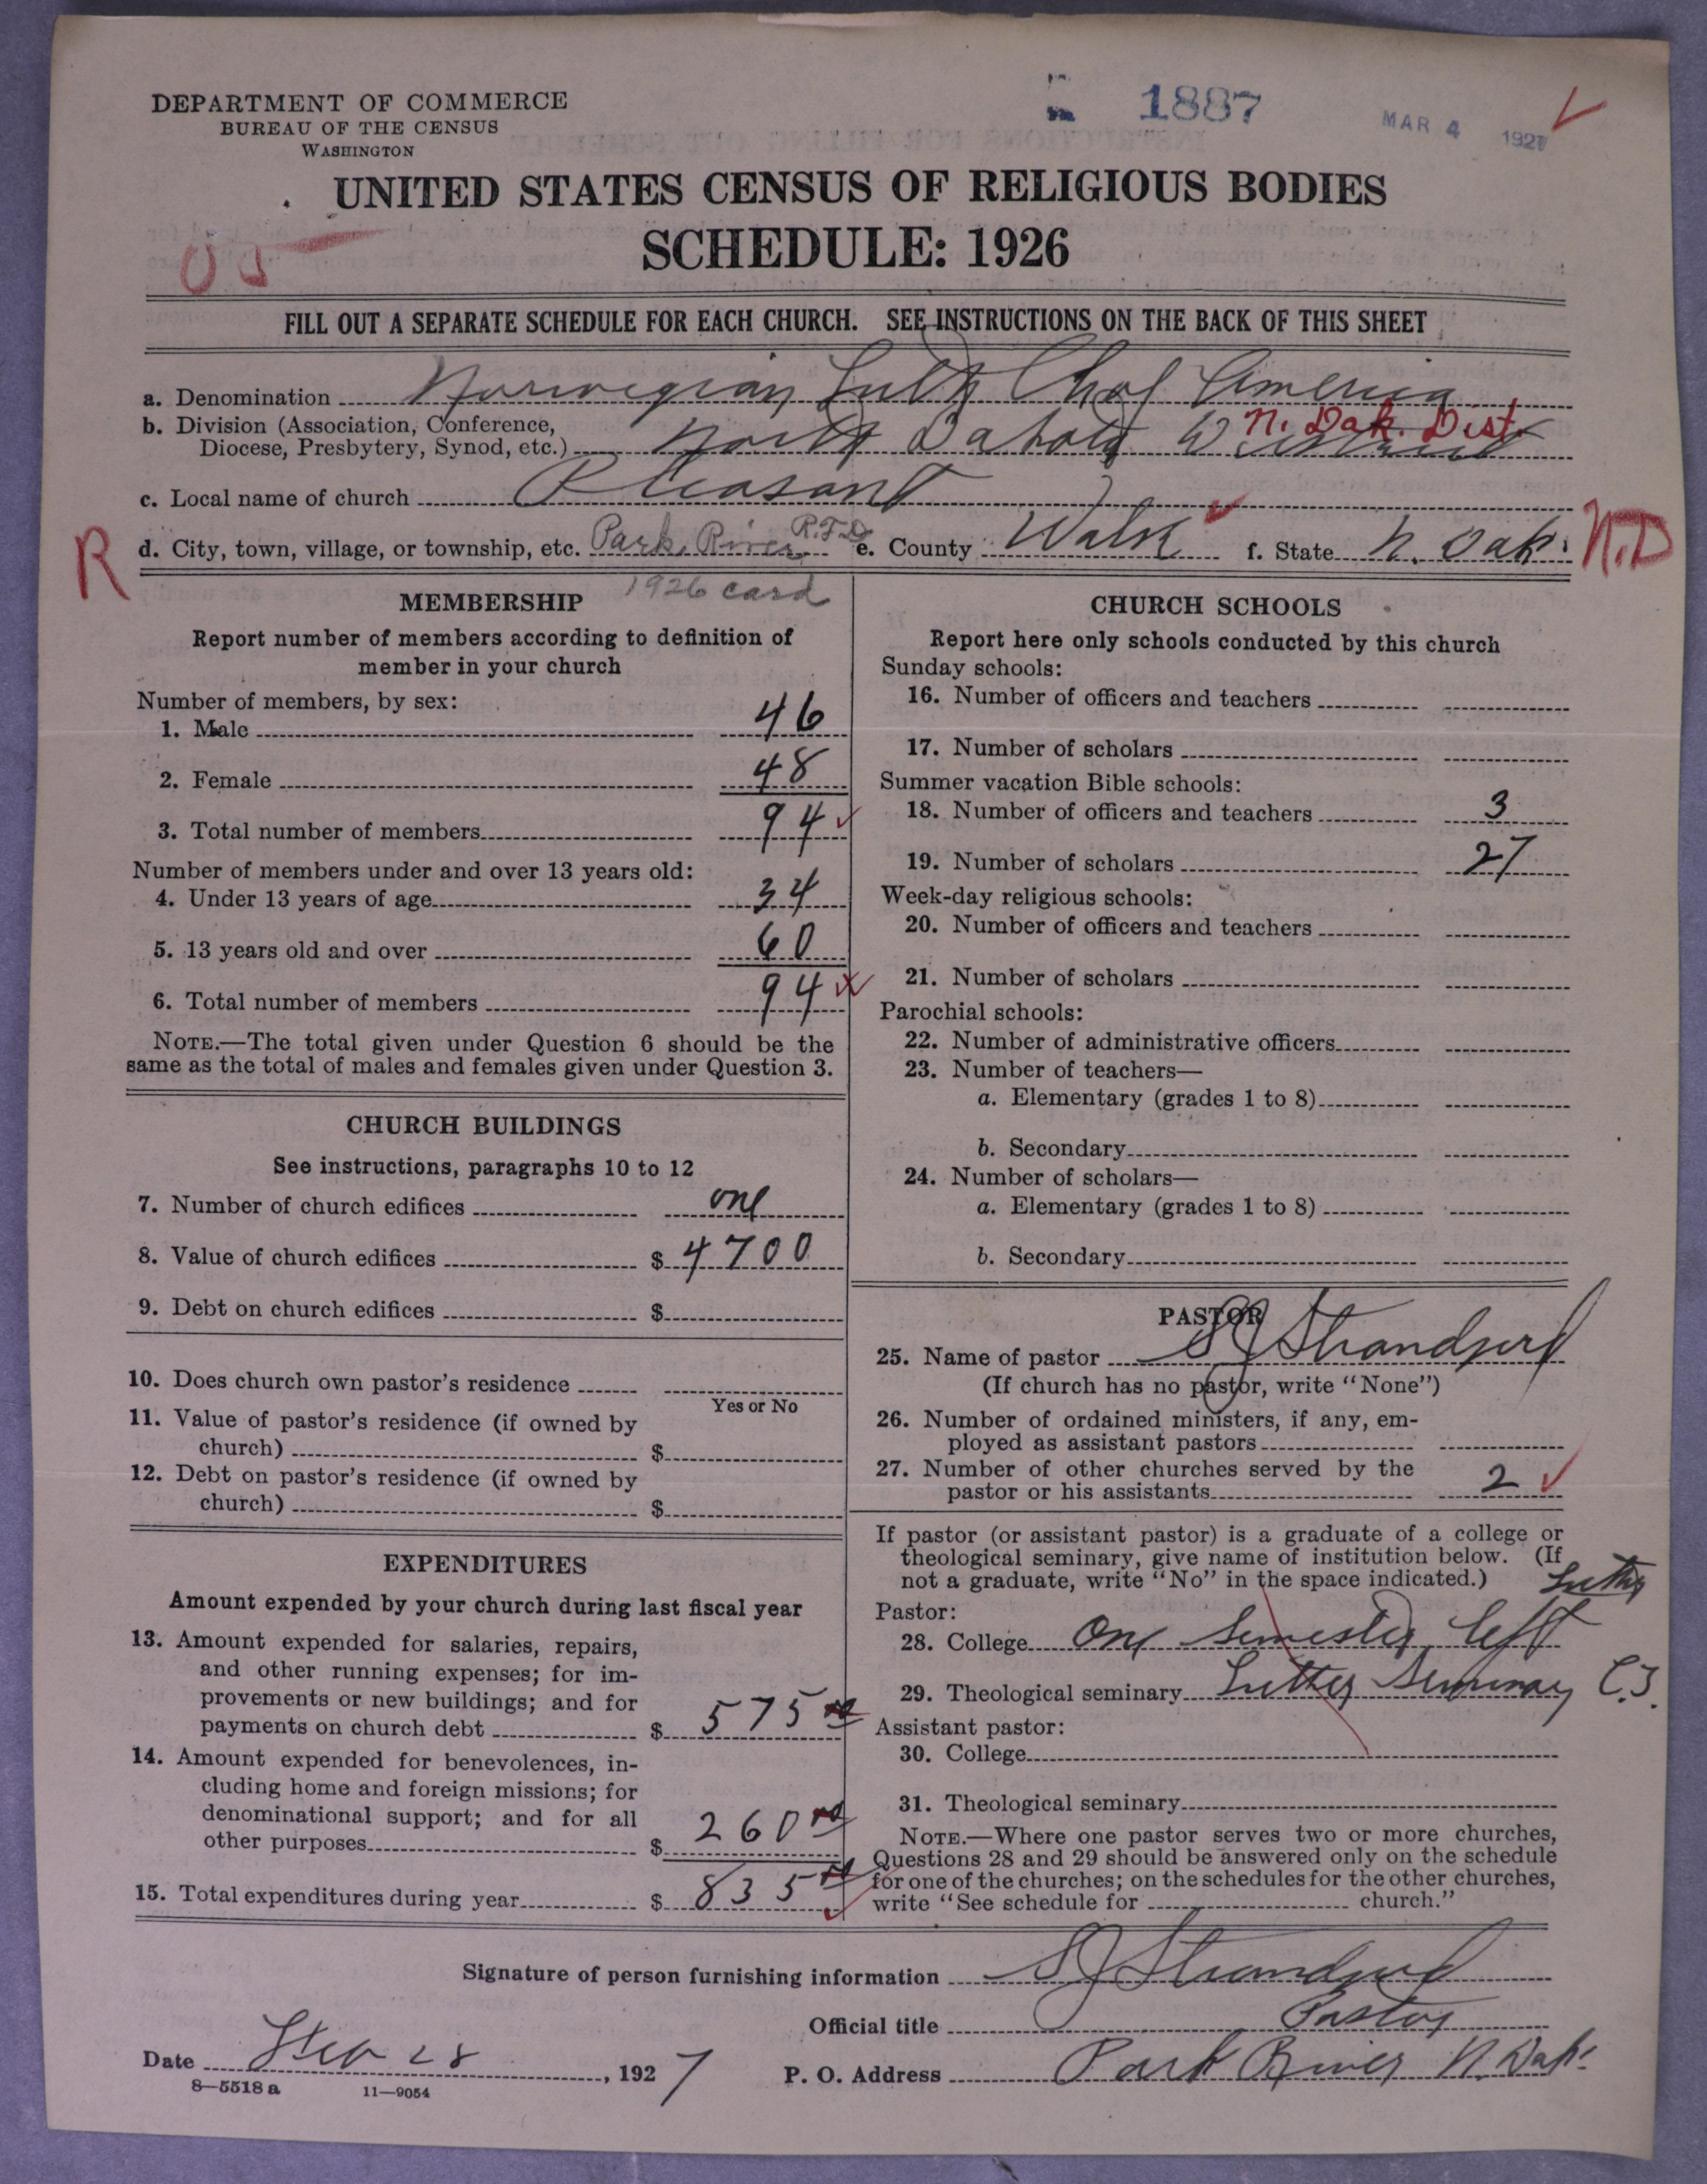 DEPARTMENT OF COMMERCE
BUREAU OF THE CENSUS
WASHINGTON
1887
MAR 4 1927
UNITED STATES CENSUS OF RELIGIOUS BODIES
SCHEDULE: 1926
FILL OUT A SEPARATE SCHEDULE FOR EACH CHURCH. SEE INSTRUCTIONS ON THE BACK OF THIS SHEET
a. Denomination Norwegian Luth Ch of America
b. Division (Association, Conference,
Diocese, Presbytery, Synod, etc.) North Dakota District N. Dak. Dist.
c. Local name of church Pleasant
R d. City, town, village, or township, etc. Park River R.F.D. e. County Walsh f. State N. Dak. N.D
1926 card
MEMBERSHIP
Report number of members according to definition of
member in your church
Number of members, by sex:
1. Male 46
2. Female 48
3. Total number of members 94
Number of members under and over 13 years old:
4. Under 13 years of age 34
5. 13 years old and over 60
6. Total number of members 94
NOTE.—The total given under Question 6 should be the
same as the total of males and females given under Question 3.
CHURCH BUILDINGS
See instructions, paragraphs 10 to 12
7. Number of church edifices one
8. Value of church edifices $ 4700
9. Debt on church edifices $
10. Does church own pastor's residence
Yes or No
11. Value of pastor's residence (if owned by
church) $
12. Debt on pastor's residence (if owned by
church) $
EXPENDITURES
Amount expended by your church during last fiscal year
13. Amount expended for salaries, repairs,
and other running expenses; for im-
provements or new buildings; and for
payments on church debt $ 575 00
14. Amount expended for benevolences, in-
cluding home and foreign missions; for
denominational support; and for all
other purposes $ 260 00
15. Total expenditures during year $ 835 00
CHURCH SCHOOLS
Report here only schools conducted by this church
Sunday schools:
16. Number of officers and teachers
17. Number of scholars
Summer vacation Bible schools:
18. Number of officers and teachers 3
19. Number of scholars 27
Week-day religious schools:
20. Number of officers and teachers
21. Number of scholars
Parochial schools:
22. Number of administrative officers
23. Number of teachers—
a. Elementary (grades 1 to 8)
b. Secondary
24. Number of scholars—
a. Elementary (grades 1 to 8)
b. Secondary
PASTOR
25. Name of pastor S J Strandjord
(If church has no pastor, write "None")
26. Number of ordained ministers, if any, em-
ployed as assistant pastors
27. Number of other churches served by the
pastor or his assistants 2
If pastor (or assistant pastor) is a graduate of a college or
theological seminary, give name of institution below. (If
not a graduate, write "No" in the space indicated.)
Luther
Pastor:
28. College One semester left
29. Theological seminary Luther Seminary
Assistant pastor:
30. College
31. Theological seminary
NOTE.—Where one pastor serves two or more churches,
Questions 28 and 29 should be answered only on the schedule
for one of the churches; on the schedules for the other churches,
write "See schedule for church."
Signature of person furnishing information S J Strandjord
Official title Pastor
Date Feb 28, 1927 P. O. Address Park River N. Dak.
8—5518 a 11—9054